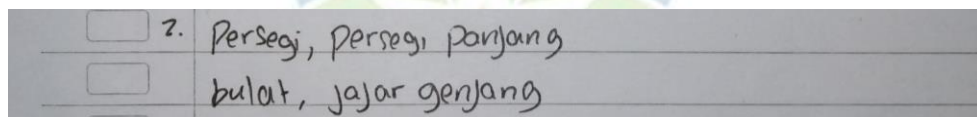 2. Persegi, persegi panjang
bulat, jajar genjang